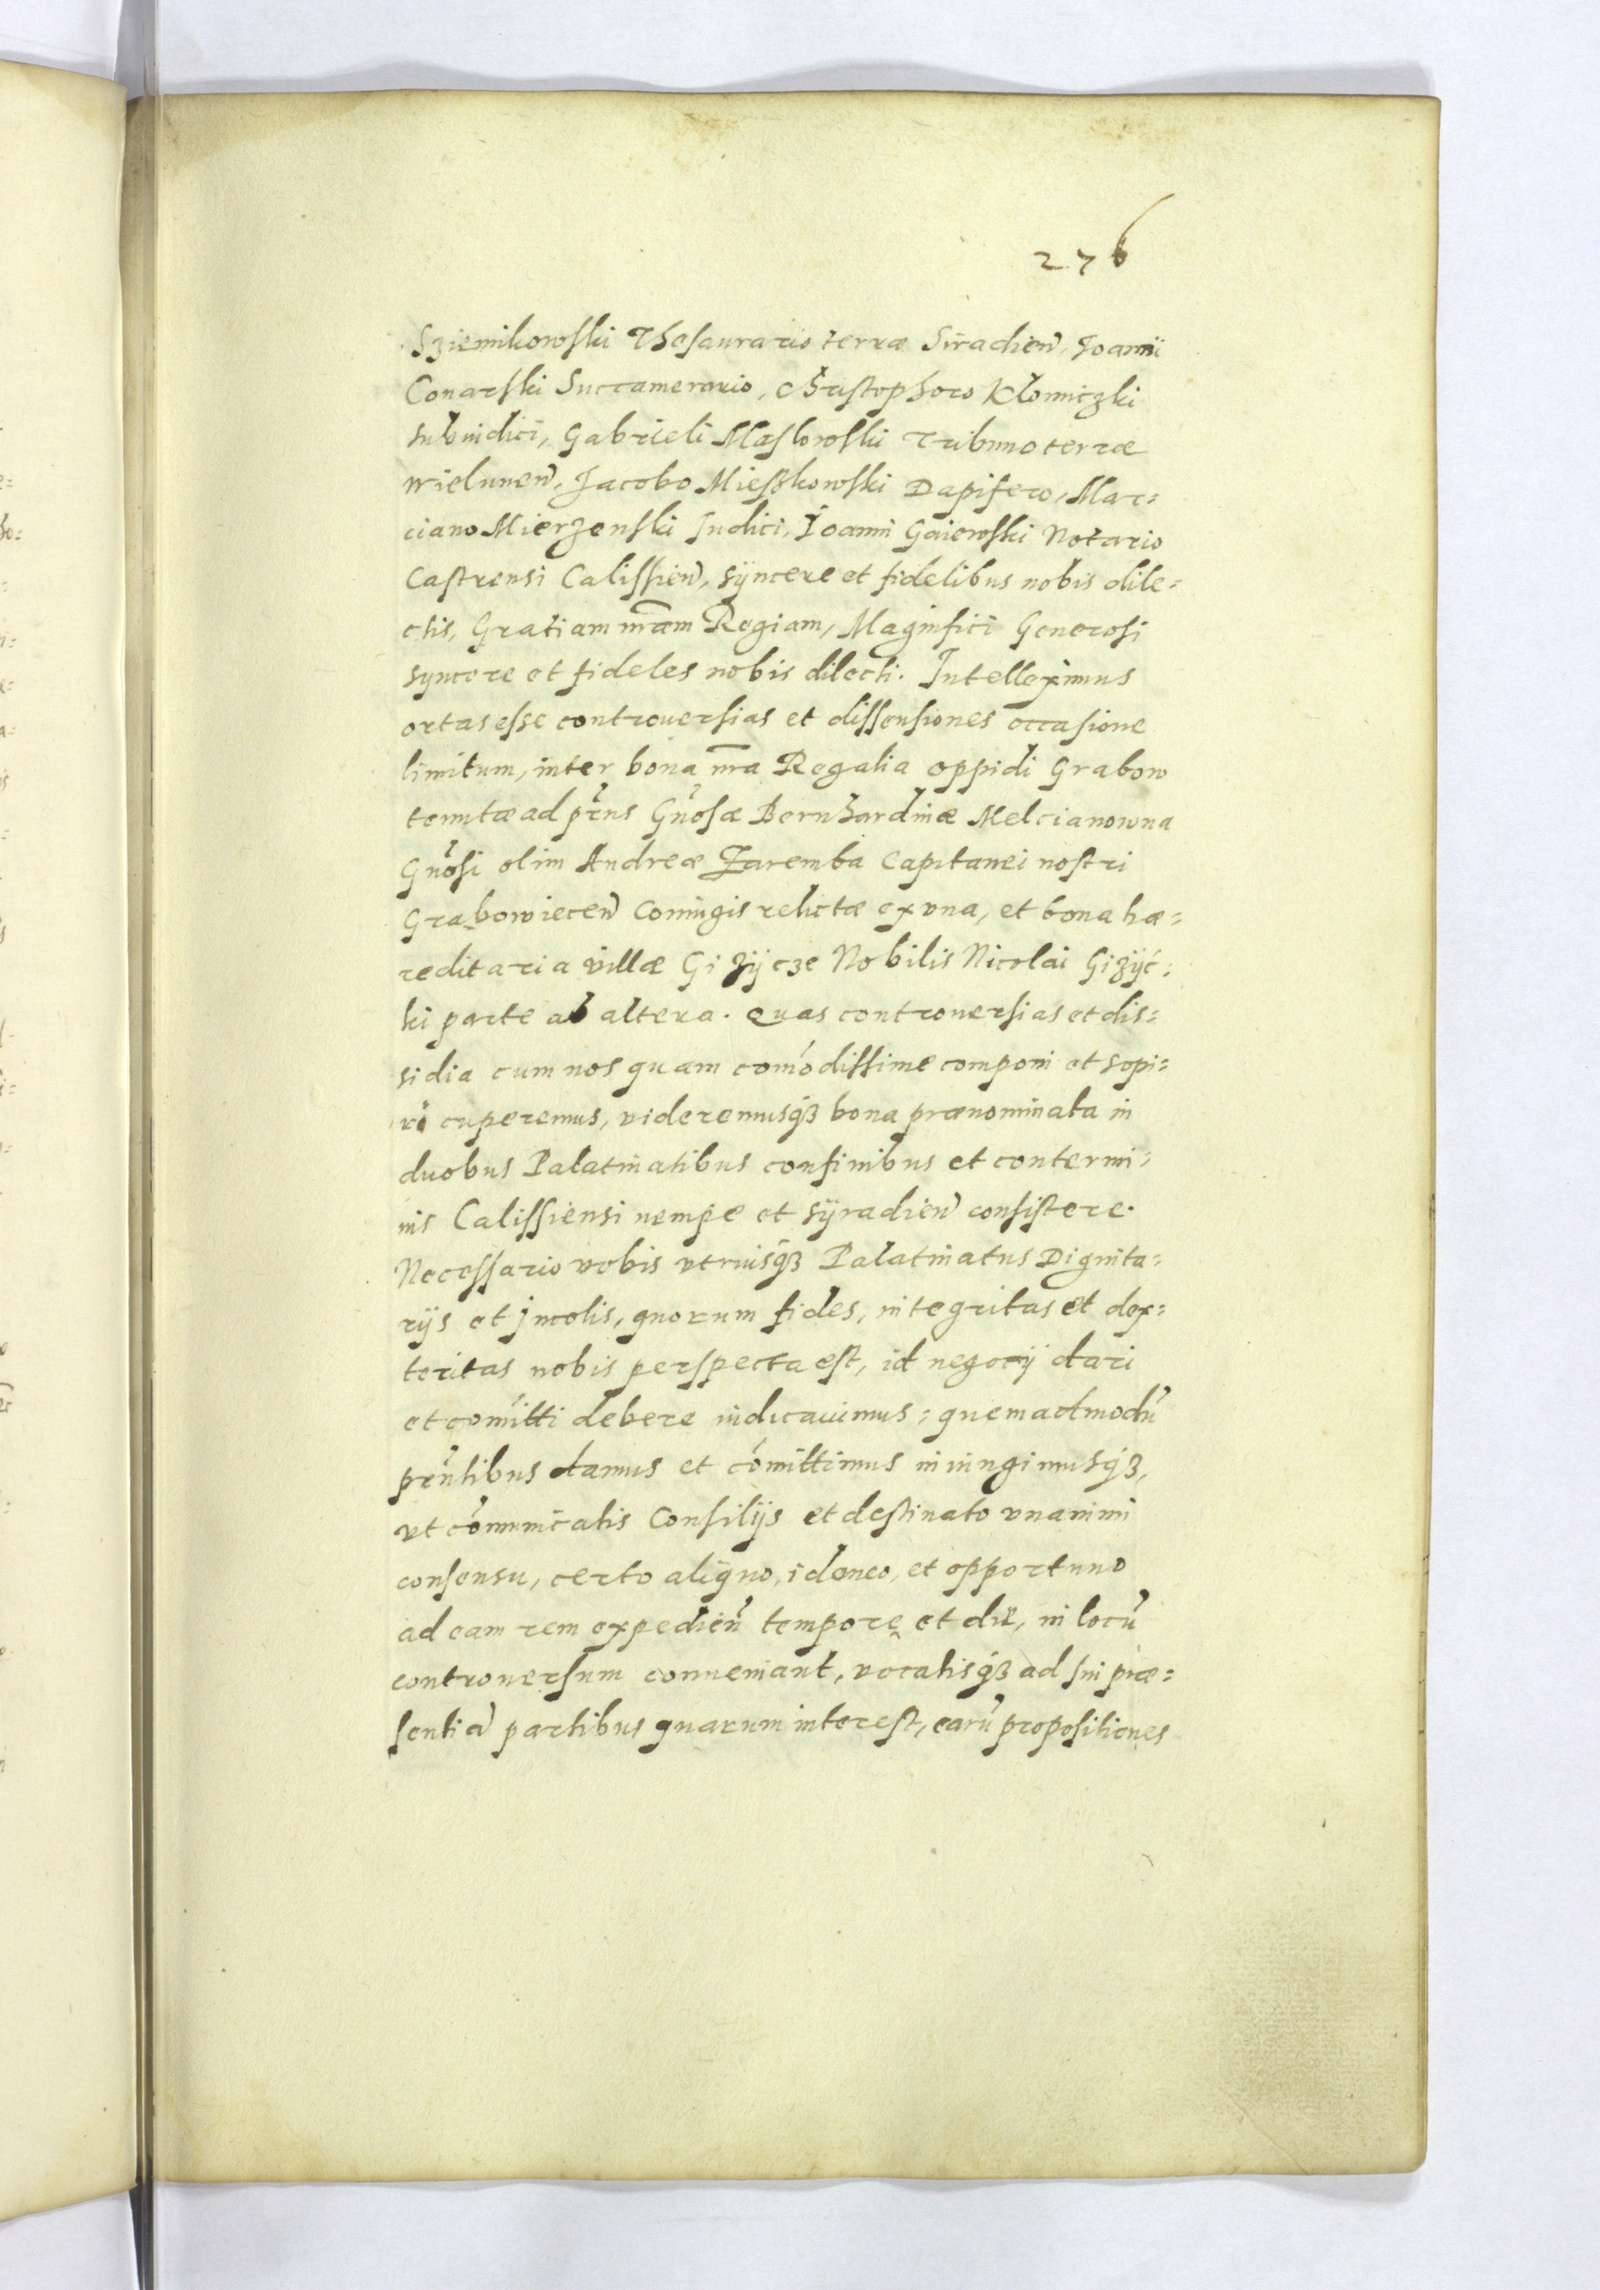 276
Sziemikowski Thesaurario terræ Siradien̄, Joanni
Conarski Succamerario, Christophoro Kłomiczki
Subiudici, Gabrieli Maslowski Tribuno terræ
Wielunen̄, Jacobo Mieszkowski Dapifero, Mar=
ciano Mierzenski Judici, Joanni Gaiewski Notario
Castrensi Calissien̄, Syncere et fidelibus nobis dile=
ctis, Gratiam nr̄am Regiam, Magnifici Generosi
syncere et fideles nobis dilecti. Intelleximus
ortas esse controuersias et dissensiones occasione
limitum, inter bona nr̄a Regalia oppidi Grabow
tenutæ ad prn̄s Gn̄osæ Bernhardinæ Melcianowna
Gn̄osi olim Andreæ Zaremba Capitanei nostri
Grabowiecen̄ Coniugis relictæ ex vna, et bona hæ=
reditaria villæ Gizÿcze Nobilis Nicolai Gizÿc=
ki parte ab altera. Quas controuersias et dis=
sidia cum nos quam com̄odissime componi et sopi=
ri cuperemus, videremusq̃ bona prænominata in
duobus Palatinatibus confinibus et contermi=
nis Calissiensi nempe et Sÿradien̄ consistere.
Necessario vobis vtriusq̃ Palatinatus Dignita=
rijs et Jncolis, quorum fides, integritas et dex=
teritas nobis perspecta est, id negocij dari
et com̄itti debere iudicauimus: quemadmodū
prn̄tibus damus et com̄ittimus iniungimusq̃,
vt com̄unicatis Consilijs et destinato vnanimi
consensu, certo aliquo, idoneo, et opportuno
ad eam rem expedien̄ tempore et die, in locū
controuersum conueniant, vocatisq̃ ad sui præ=
sentiā partibus quarum interest, earū propositiones